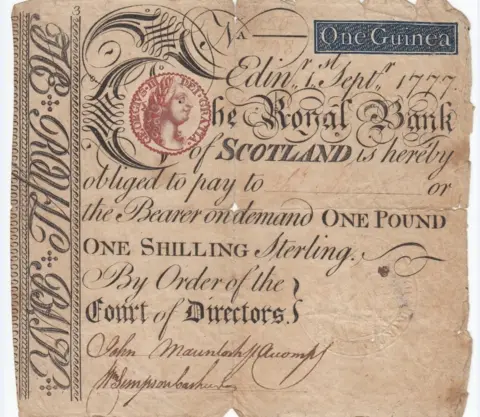 THE ROYAL BANK
3
No
One Guinea
GEORGIVS·III DEI·GRATIA
Edinr. 1st. Septr. 1777.
The Royal Bank
of SCOTLAND is hereby
obliged to pay to or
the Bearer on demand ONE POUND
ONE SHILLING Sterling.
By Order of the
Court of Directors.
John
Wm Simpson Cashier